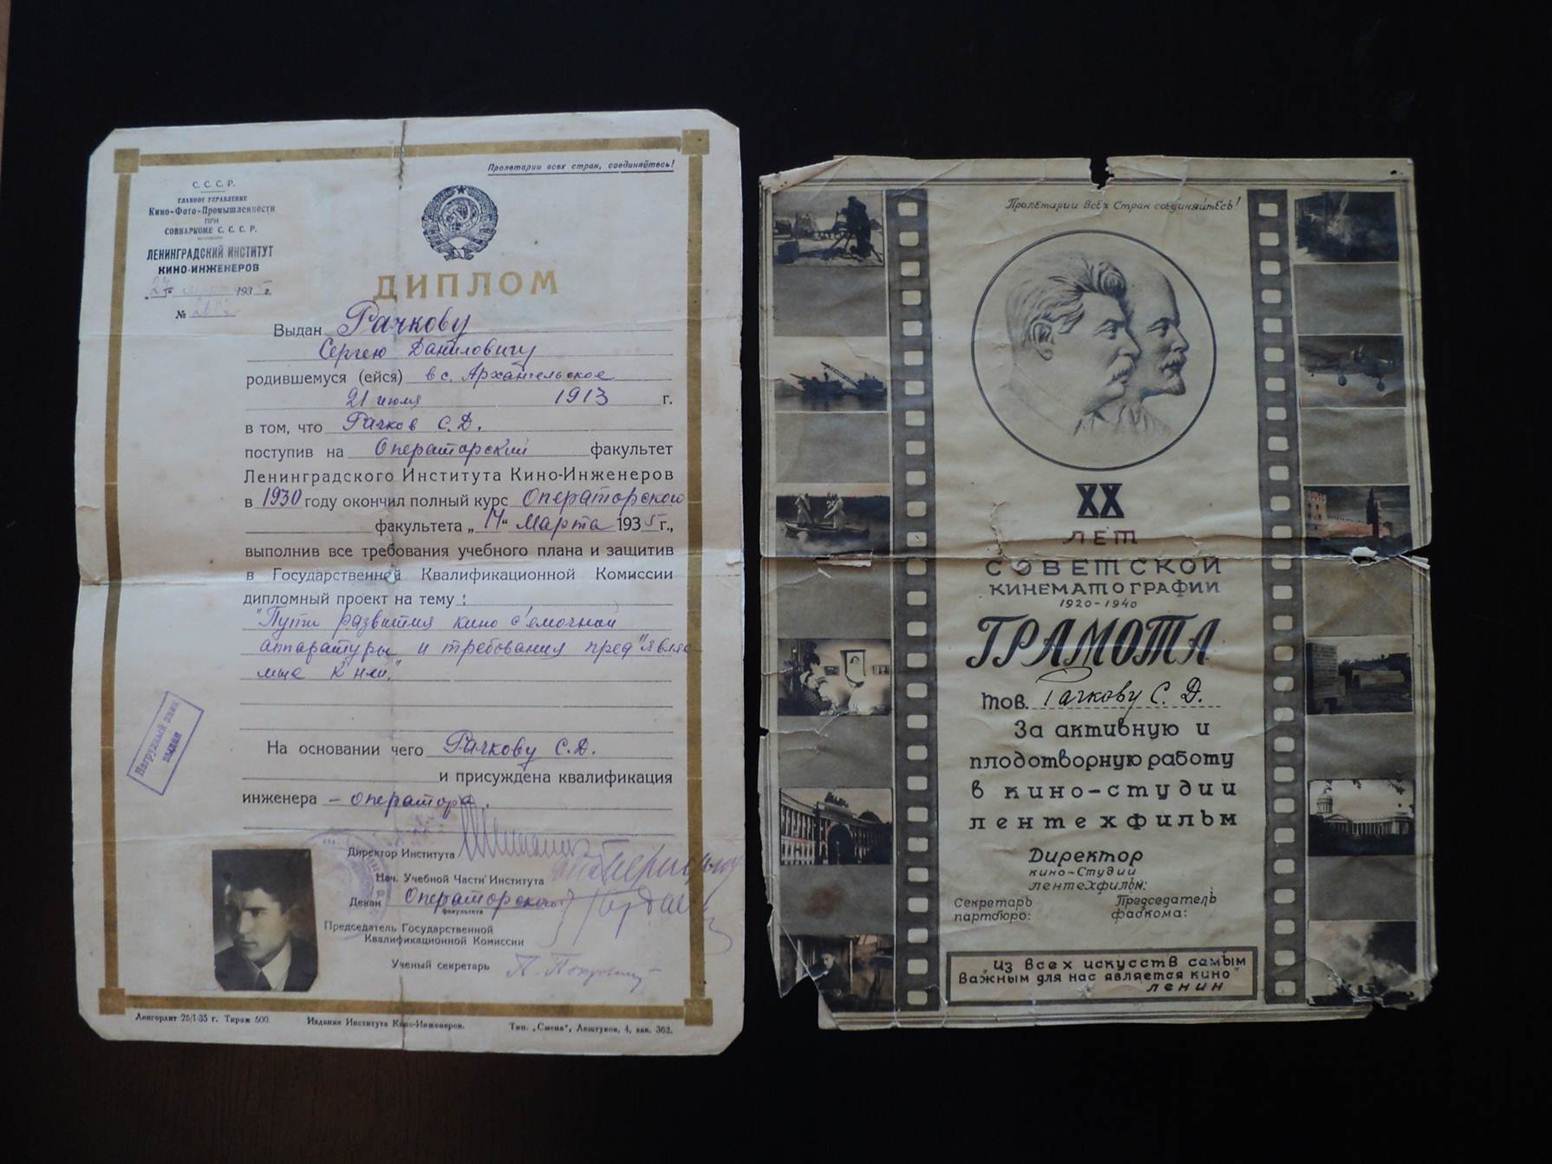 Пролетарии всех стран, соединяйтесь!
С. С. С. Р.
ГЛАВНОЕ УПРАВЛЕНИЕ
Кино-Фото-Промышленности
ПРИ
СОВНАРКОМЕ С. С. С. Р.
ЛЕНИНГРАДСКИЙ ИНСТИТУТ
КИНО-ИНЖЕНЕРОВ
1935 г.
№
ДИПЛОМ
Выдан Рачкову
Сергею Даниловичу
родившемуся (ейся) в с. Архангельское
21 июля 1913 г.
в том, что Рачков С.Д.
поступив на Операторский факультет
Ленинградского Института Кино-Инженеров
в 1930 году окончил полный курс Операторского
факультета „14" марта 1935 г.,
выполнив все требования учебного плана и защитив
в Государственной Квалификационной Комиссии
дипломный проект на тему:
"Пути развития кино с'емочной
аппаратуры и требования пред"являе
мые к ней."
На основании чего Рачкову С.Д.
и присуждена квалификация
инженера - оператора.
Нагрудный знак
выдан
Директор Института
Нач. Учебной Части Института
Декан Операторского
факультета
Председатель Государственной
Квалификационной Комиссии
Ученый секретарь
Ленгорлит 25/I-35 г. Тираж 500. Издание Института Кино-Инженеров. Тип. „Смена", Лештуков, 4, зак. 362.
Пролетарии всех стран соединяйтесь!
XX
ЛЕТ
СОВЕТСКОЙ
КИНЕМАТОГРАФИИ
1920-1940
ГРАМОТА
тов. Рачкову С. Д.
За активную и
плодотворную работу
в кино-студии
лентехфильм
Директор
кино-студии
лентехфильм:
Секретарь Председатель
партбюро: фабкома:
Из всех искусств самым
важным для нас является кино"
ЛЕНИН